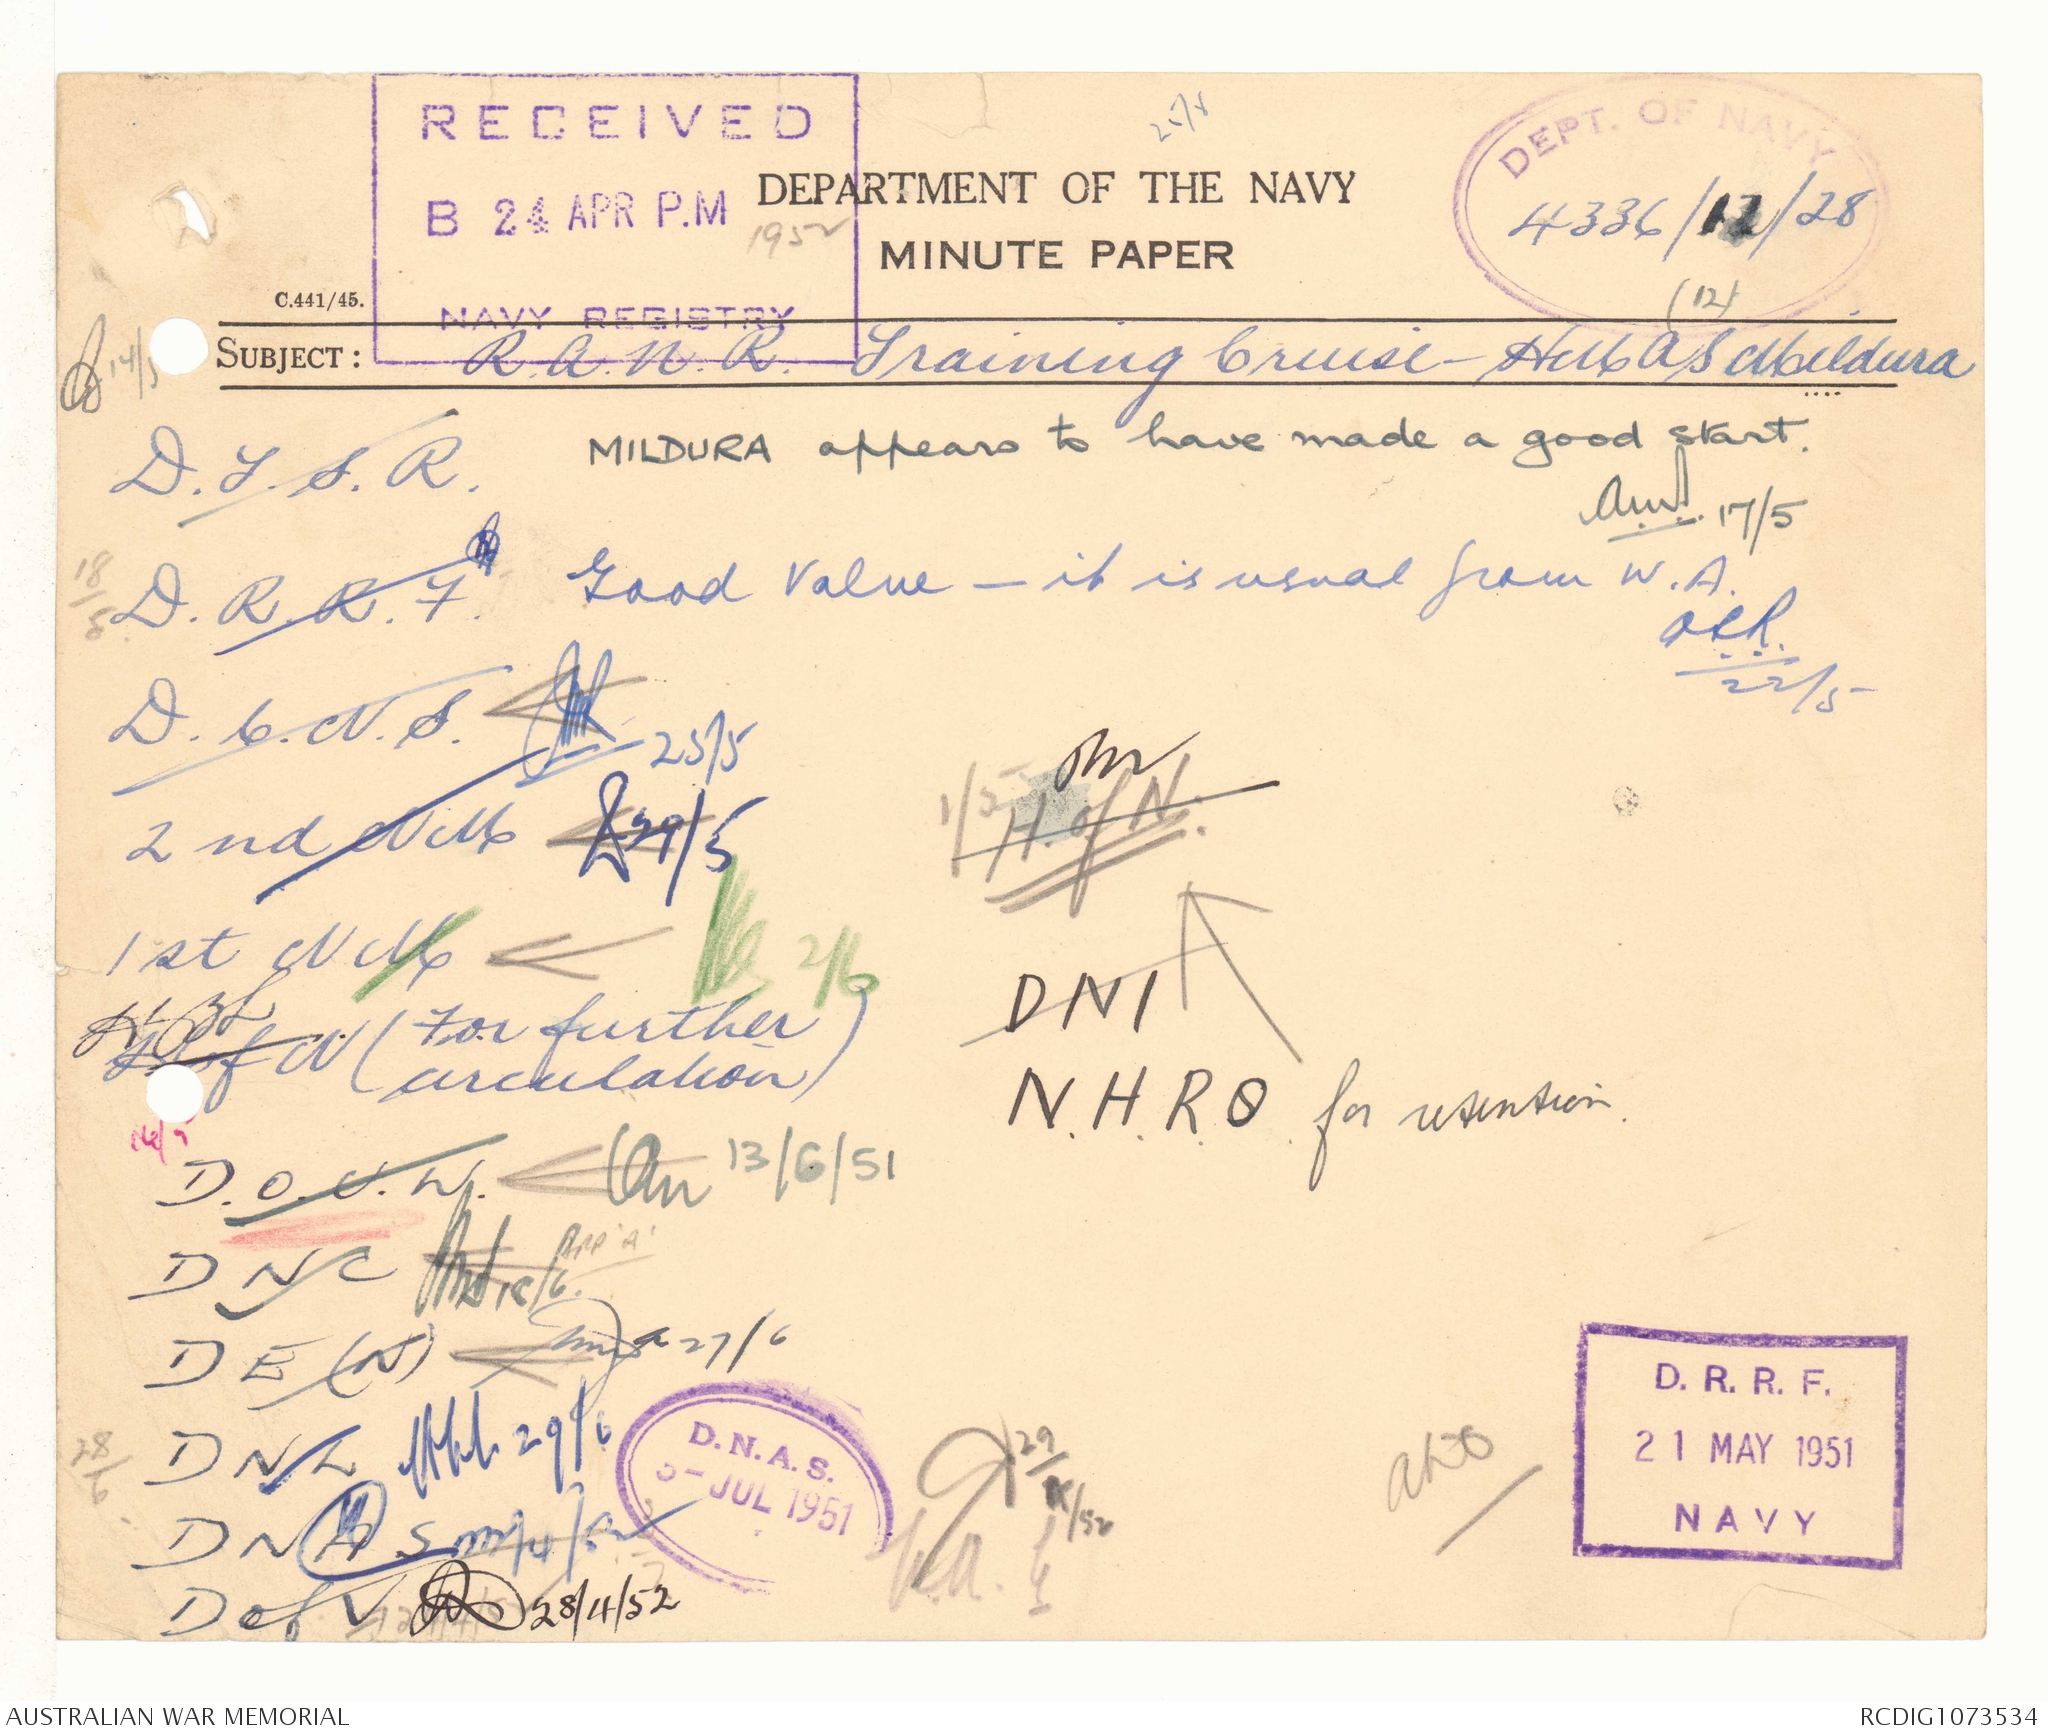 RECEIVED
B 24 APR P.M
1952
NAVY REGISTRY
25/8
DEPARTMENT OF THE NAVY
MINUTE PAPER
DEPT. OF NAVY
4336/12/28
(12)
C.441/45.
14/5
SUBJECT: R.A.N.R. Training Cruise - HMAS Mildura
D.T.S.R.
MILDURA appears to have made a good start.
17/5
18/5
D.R.R.F.
Good value - it is usual from W.A.
22/5
D.C.N.S.
25/5
2nd NM
29/5
1/5
H. of N.
1st NM
2/6
H. of N (For further
circulation)
DNI
N.H.R.O. for retention.
D.O.U.W.
13/6/51
DNC
18/6
App 'A'
DE(N)
27/6
DNL
29/6
28/6
D.N.A.S.
3- JUL 1951
DNAS
D of V
28/4/52
29/
D.R.R.F.
21 MAY 1951
NAVY
AUSTRALIAN WAR MEMORIAL
RCDIG1073534